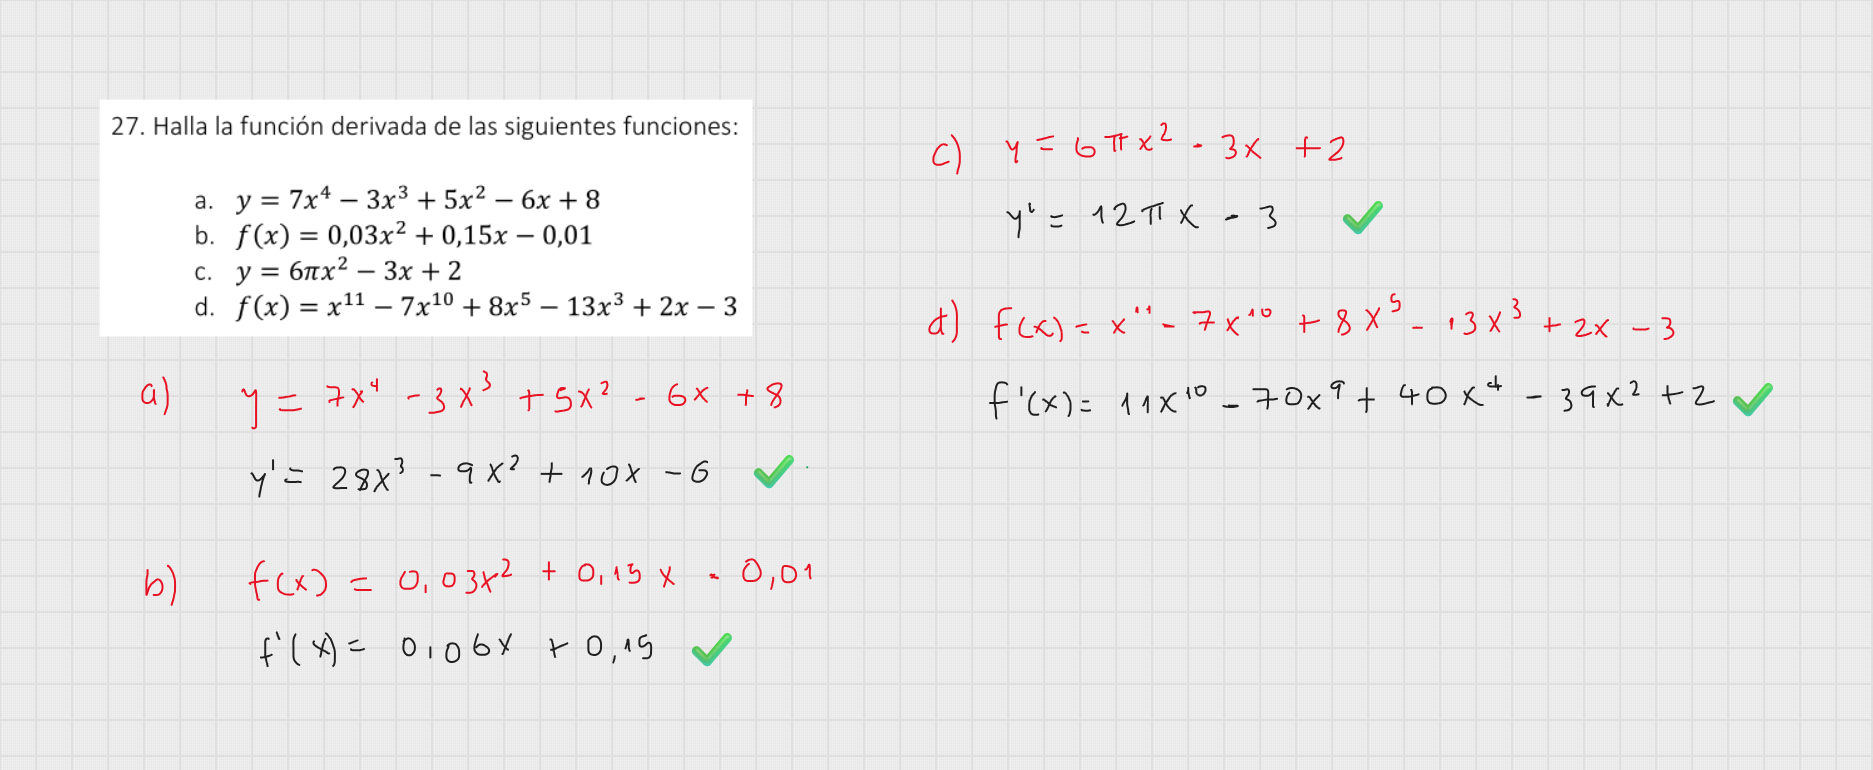 27. Halla la función derivada de las siguientes funciones:
a. y = 7x⁴ − 3x³ + 5x² − 6x + 8
b. f(x) = 0,03x² + 0,15x − 0,01
c. y = 6πx² − 3x + 2
d. f(x) = x¹¹ − 7x¹⁰ + 8x⁵ − 13x³ + 2x − 3
a) y = 7x⁴ - 3x³ + 5x² - 6x + 8
y' = 28x³ - 9x² + 10x - 6
b) f(x) = 0,03x² + 0,15x - 0,01
f'(x) = 0,06x + 0,15
c) y = 6πx² - 3x + 2
y' = 12πx - 3
d) f(x) = x¹¹ - 7x¹⁰ + 8x⁵ - 13x³ + 2x - 3
f'(x) = 11x¹⁰ - 70x⁹ + 40x⁴ - 39x² + 2